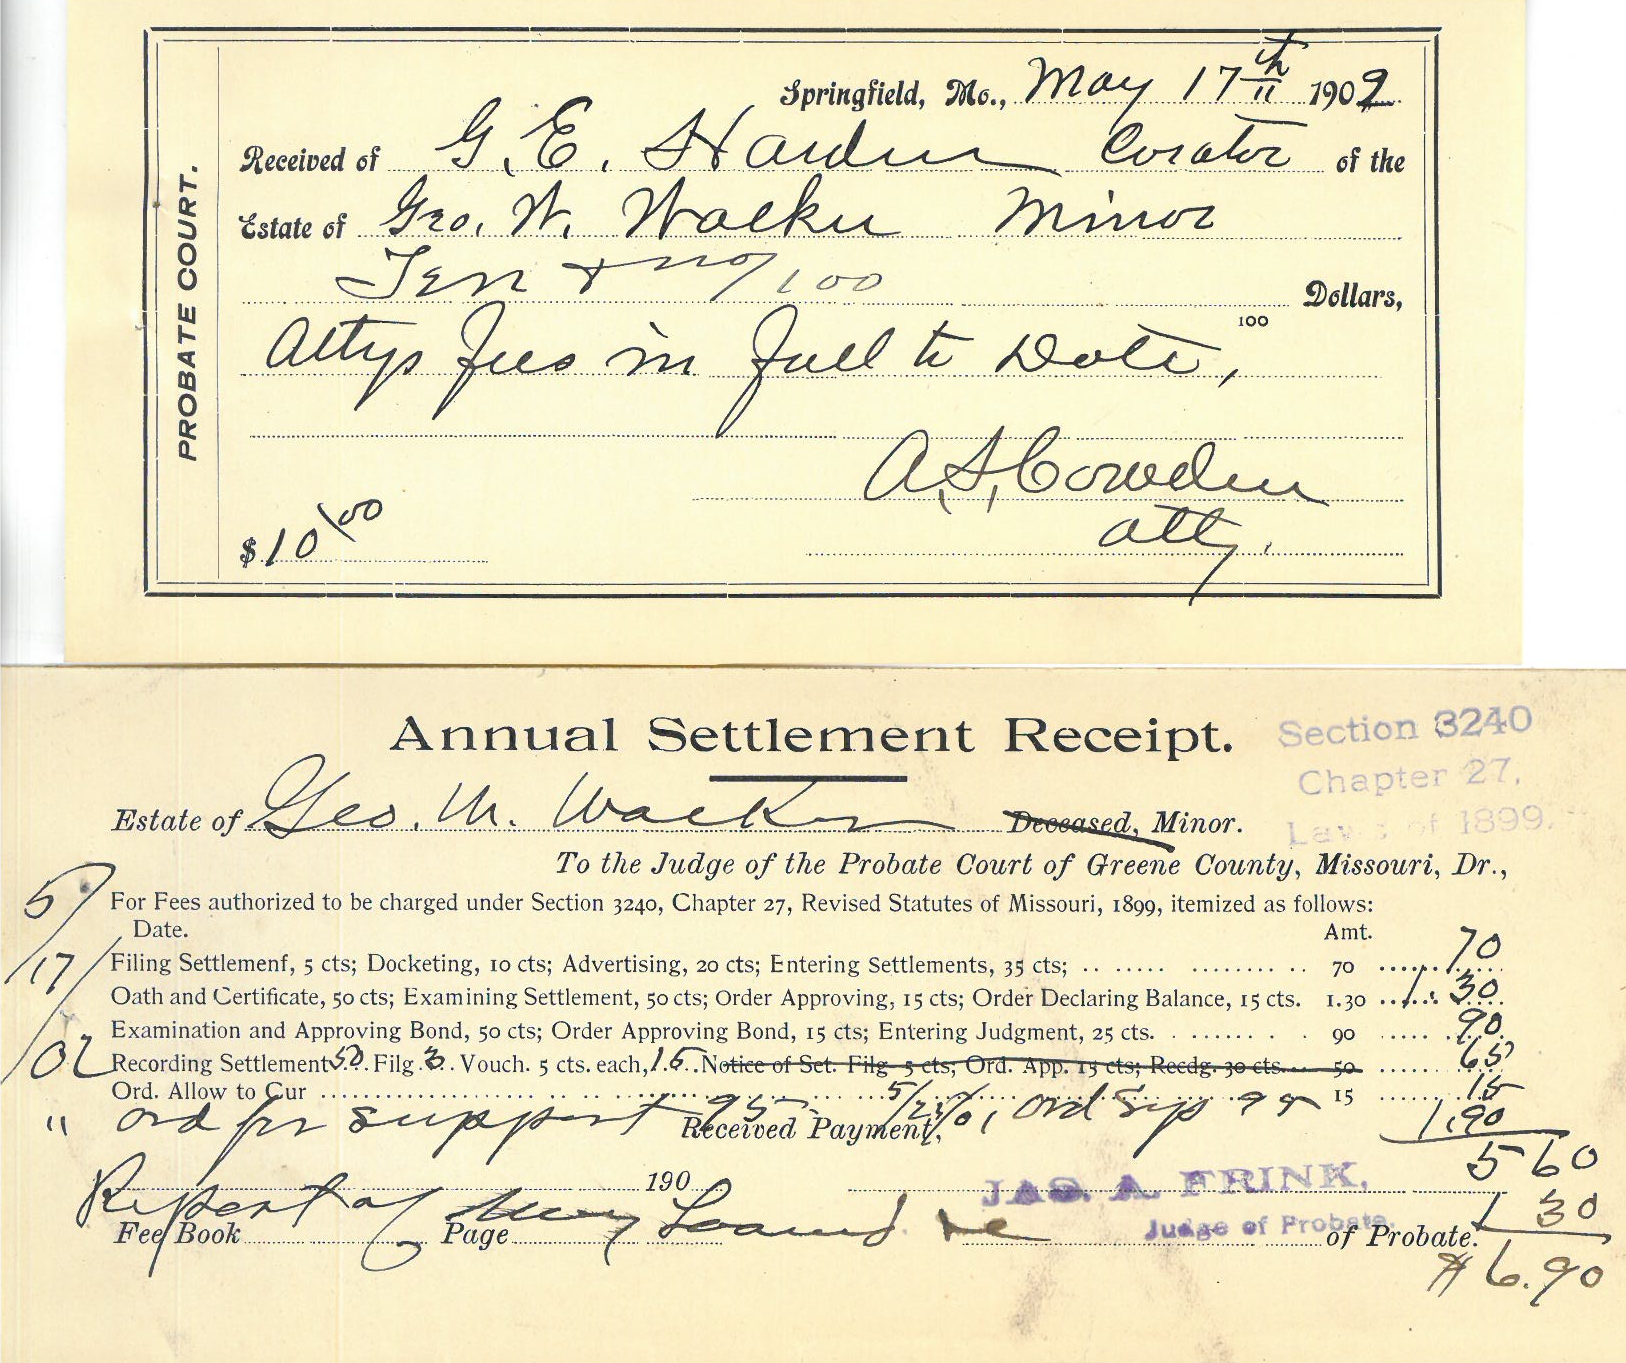 PROBATE COURT.
Springfield, Mo., May 17th 1902
Received of G. E. Harden Curator of the
Estate of Geo. W. Walker Minor
Ten & no/100 Dollars,
100
Attys fees in full to Date,
A. S. Cowden
$10/00 Atty.
Annual Settlement Receipt.
Section 3240
Chapter 27,
Laws of 1899.
Estate of Geo. W. Walker Deceased, Minor.
To the Judge of the Probate Court of Greene County, Missouri, Dr.,
5/17/02
For Fees authorized to be charged under Section 3240, Chapter 27, Revised Statutes of Missouri, 1899, itemized as follows:
Date. Amt.
Filing Settlement, 5 cts; Docketing, 10 cts; Advertising, 20 cts; Entering Settlements, 35 cts; 70 70
Oath and Certificate, 50 cts; Examining Settlement, 50 cts; Order Approving, 15 cts; Order Declaring Balance, 15 cts. 1.30 1.30
Examination and Approving Bond, 50 cts; Order Approving Bond, 15 cts; Entering Judgment, 25 cts. 90 90
Recording Settlement 50 Filg 3 Vouch. 5 cts. each, 15 Notice of Set. Filg 5 cts; Ord. App. 15 cts; Recdg. 30 cts. 50 65
Ord. Allow to Cur 15 15
" ord for support 95 5/23/01 Ord Sup 95 1.90
Received Payment,
5 60
190 JAS. A. FRINK,
Report of money Loaned 1 30
Fee Book Page Judge of Probate. of Probate.
$6.90